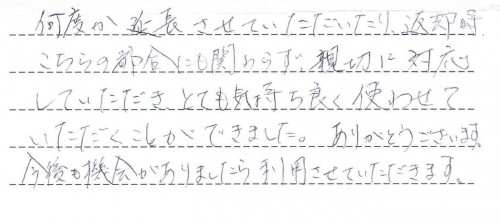 何度か延長させていただいたり、返却時、
こちらの都合にも関わらず、親切に対応
していただきとても気持ち良く使わせて
いただくことができました。ありがとうございます。
今後も機会がありましたら利用させていただきます。